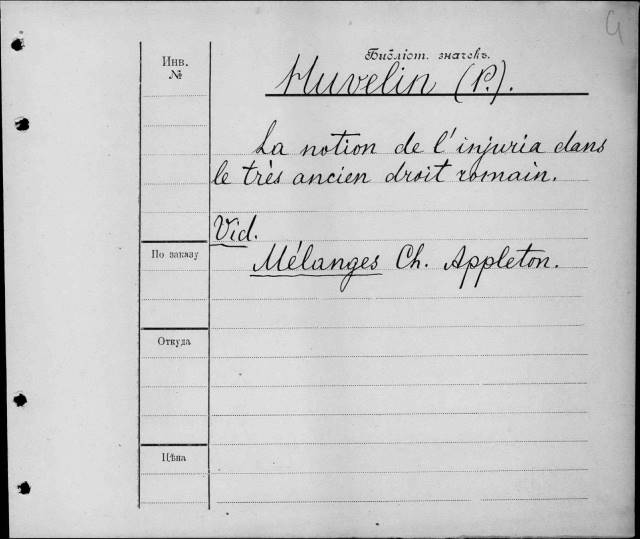 G
Библіот. значекъ.
Инв.
№
Huvelin (P.).
La notion de l'injuria dans
le très ancien droit romain.
Vid.
Mélanges Ch. Appleton.
По заказу
Откуда
Цѣна